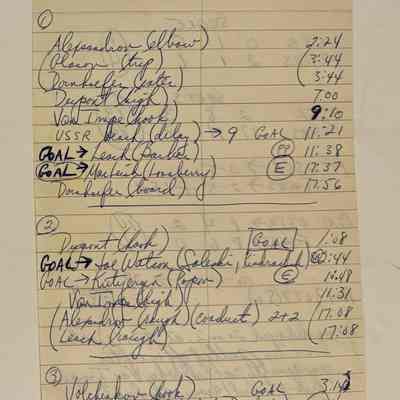 ①
Alexandrov (elbow) 2:24
(Olason (trip) (3:44
(Dornhoefer (enter) (3:44
Dupont (high) 7:00
Van Impe (hook) 9:10
USSR bench (delay) → 9 GOAL 11:21
GOAL → Leach (Barber) PP 11:38
GOAL → MacLeish (Lonsberry) E 17:37
Dornhoefer (board) 17:56
②
Dupont (hook) GOAL 1:08
GOAL → Joe Watson (Saleski, Kindrachuk) :44
GOAL → Kutyergin (Popov) E 10:48
Van Impe (high) 11:31
(Alexandrov (rough) (conduct) 2+2 (17:08
(Leach (rough) (17:08
③
Volchenkov (hook) GOAL 3:1